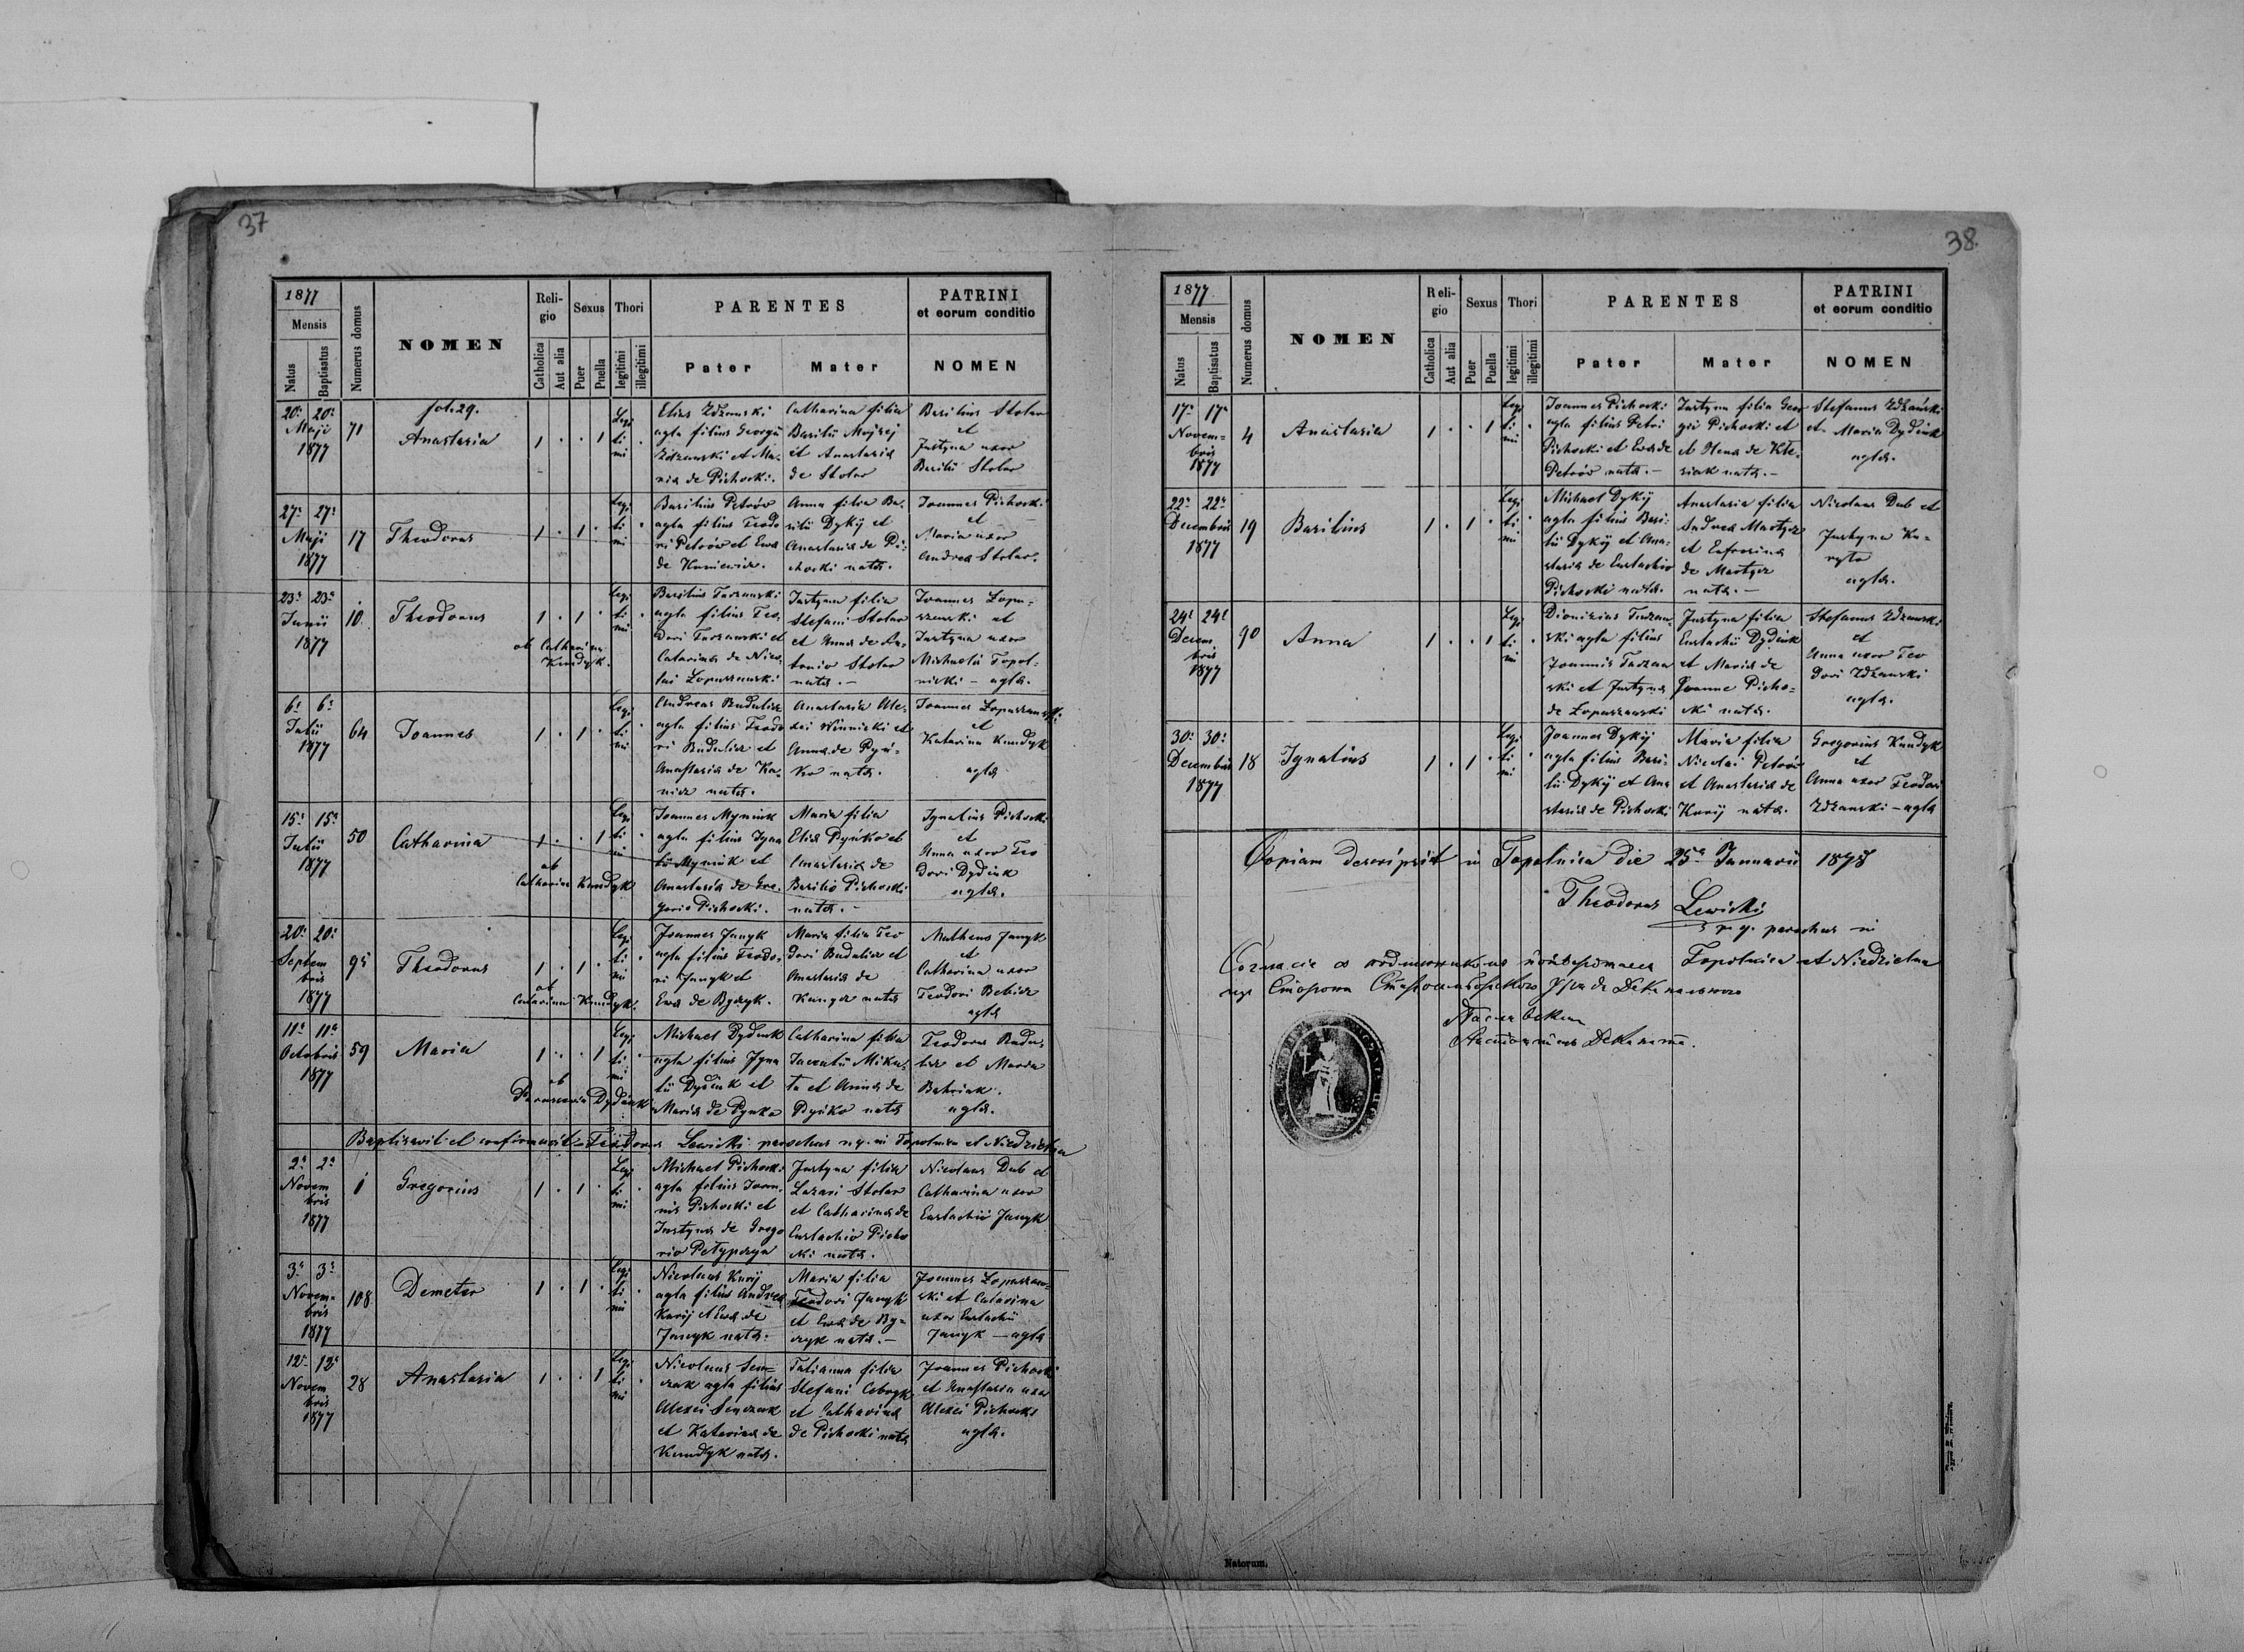 37
1877
Mensis
Natus
Baptisatus
Numerus domus
NOMEN
Religio
Catholica
Aut alia
Sexus
Puer
Puella
Thori
legitimi
illegitimi
PARENTES
Pater
Mater
PATRINI
et eorum conditio
NOMEN
20a 20a
Maji
1877
71
fol. 29.
Anastasia
1 . . 1
Legi
ti
mi
Elias Zdzanski
agla filius Georgii
Zdzanski et Ma-
ria de Pichocki.
Catharina filia
Basilii Mojsej
et Anastasia
de Stolar
Basilius Stolar
et
Justyna uxor
Basilii Stolar
27a 27a
Maji
1877
17
Theodorus
1 . 1 .
Legi
ti
mi
Basilius Petrów
agla filius Teodo
ri Petrów et Eva
de Kaniewicz.
Anna filia Ba-
silii Dykÿ et
Anastasia de Pi-
chocki nata.
Joannes Pichocki
et
Maria uxor
Andrea Stolar.
23a 23a
Junii
1877
10.
Theodorus
1 . 1 .
ob Catharina
Kundyk.
Legi
ti
mi
Basilius Turzanski
agla filius Teo
dori Turzanski et
Catarina de Nico
lai Lopuszanski
Justyna filia
Stefani Stolar
et Anna de An-
tonio Stolar
nata. —
Joannes Lopu-
szanski et
Justyna uxor
Michaelis Topol-
nicki — agla.
6a 6a
Julii
1877
64
Joannes
1 . 1 .
Legi
ti
mi
Andreas Budulicz
agla filius Teodo
ri Budulicz et
Anastasia de Ka-
nicz nata.
Anastasia Ale-
xei Winnicki et
Anna de Pyń-
ko nata.
Joannes Lopuszanski
et
Katarina Kundyk
agla
15a 15a
Julii
1877
50
Catharina
1 . . 1
ob
Catharina Kundyk
Legi
ti
mi
Joannes Myniuk
agla filius Igna
tii Myniuk et
Anastasia de Gre-
gorio Pichocki.
Maria filia
Elia Pyńko et
Anastasia de
Basilio Pichocki
nata. —
Ignatius Pichocki
et
Anna uxor Teo
dori Dydiuk
agla.
20a 20a
Septem
bris
1877
95
Theodorus
1 . 1 .
ob
Catarina Kundyk.
Legi
ti
mi
Joannes Janyk
agla filius Teodo-
ri Janyk et
Eva de Byczyk.
Maria filia Teo
dori Budulicz et
Anastasia de
nata
Matheus Janyk
et
Catharina uxor
Teodori
agla
11a 11a
Octobris
1877
59
Maria
1 . . 1
ob
Parascevia Dydiuk
Legi
ti
mi
Michael Dydiuk
agla filius Igna
tii Dydiuk et
Maria de Pynko
Catharina filia
Mika-
ta et Anna de
Pyńko nata
Teodorus Budu-
licz et Maria
agla.
Baptisavit et confirmavit Teodorus Lewicki parochus r. g. in Topolnica et Niedzielna
2a 2a
Novem
bris
1877
1
Gregorius
1 . 1 .
Legi
ti
mi
Michael Pichocki
agla filius Joan-
nis Pichocki et
Justyna de Grego
rio
Justyna filia
Lazari Stolar
et Catharina de
Eustachio Picho
cki nata.
Nicolaus Dub et
Catharina uxor
Eustachii Janyk
3a 3a
Novem-
bris
1877
108
Demeter
1 . 1 .
Legi
ti
mi
Nicolaus Kurij
agla filius Andrea
Kurij et Eva de
Janyk nata.
Maria filia
Teodori Janyk
et Eva de By-
czyk nata. —
Joannes Lopuszan-
ski et Catarina
uxor Eustachii
Janyk — agla
12a 12a
Novem
bris
1877
28
Anastasia
1 . . 1
Legi
ti
mi
Nicolaus Sen-
czak agla filius
Alexei Senczak
et Katarina de
Kundyk nata.
Tatianna filia
Stefani
et Catharina
de Pichocki nata
Joannes Pichocki
et Anastasia uxor
Alexei Pichocki
agla.
38.
1877
Mensis
Natus
Baptisatus
Numerus domus
NOMEN
Religio
Catholica
Aut alia
Sexus
Puer
Puella
Thori
legitimi
illegitimi
PARENTES
Pater
Mater
PATRINI
et eorum conditio
NOMEN
17a 17a
Novem-
bris
1877
4
Anastasia
1 . . 1
Legi
ti
mi
Joannes Pichocki
agla filius Petri
Pichocki et Eva de
Petrów nata. —
Justyna filia Geor
gii Pichocki et
et Olena de
nata. —
Stefanus Zdżański
et Maria Dydiuk
agla.
22a 22a
Decembris
1877
19
Basilius
1 . 1 .
Legi
ti
mi
Michael Dykÿ
agla filius Basi-
lii Dykÿ et Ana-
stasia de Eustachio
Pichocki nata.
Anastasia filia
Andrea Martycz
et Eufrosina
de Martycz
nata. —
Nicolaus Dub et
Justyna Ko-
ryto
agla.
24a 24a
Decem
bris
1877
90
Anna
1 . . 1
Legi
ti
mi
Dionisius Turzan-
ski agla filius
Joannis Turzan
ski et Justyna
de Lopuszanski
Justyna filia
Eustachii Dydiuk
et Maria de
Joanne Picho-
cki nata.
Stefanus Zdzanski
et
Anna uxor Teo
dori Zdżanski
agla.
30a 30a
Decembris
1877
18
Ignatius
1 . 1 .
Legi
ti
mi
Joannes Dykÿ
agla filius Basi-
lii Dykÿ et Ana
stasia de Pichocki
Maria filia
Nicolai Petrów
et Anastasia de
Kurij nata.
Gregorius Kundyk
et
Anna uxor Teodori
Zdzanski — agla
Copiam descripsit in Topolnica die 25a Januarii 1878
Theodorus Lewicki
r. g. parochus in
Topolnica et Niedzielna
Natorum.